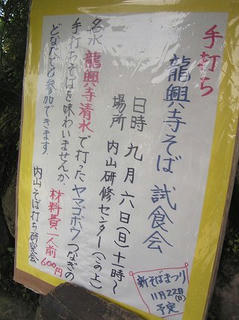 手打ち
龍興寺そば 試食会
日時 九月六日(日)十一時〜
場所 内山研修センター(この上)
名水 龍興寺清水で打ったヤマゴボウつなぎの
手打ちそばを味わいませんか。材料費一人前600円
どなたでも参加できます。
内山そば打ち研究会
新そばまつり
11月22日(日)
予定